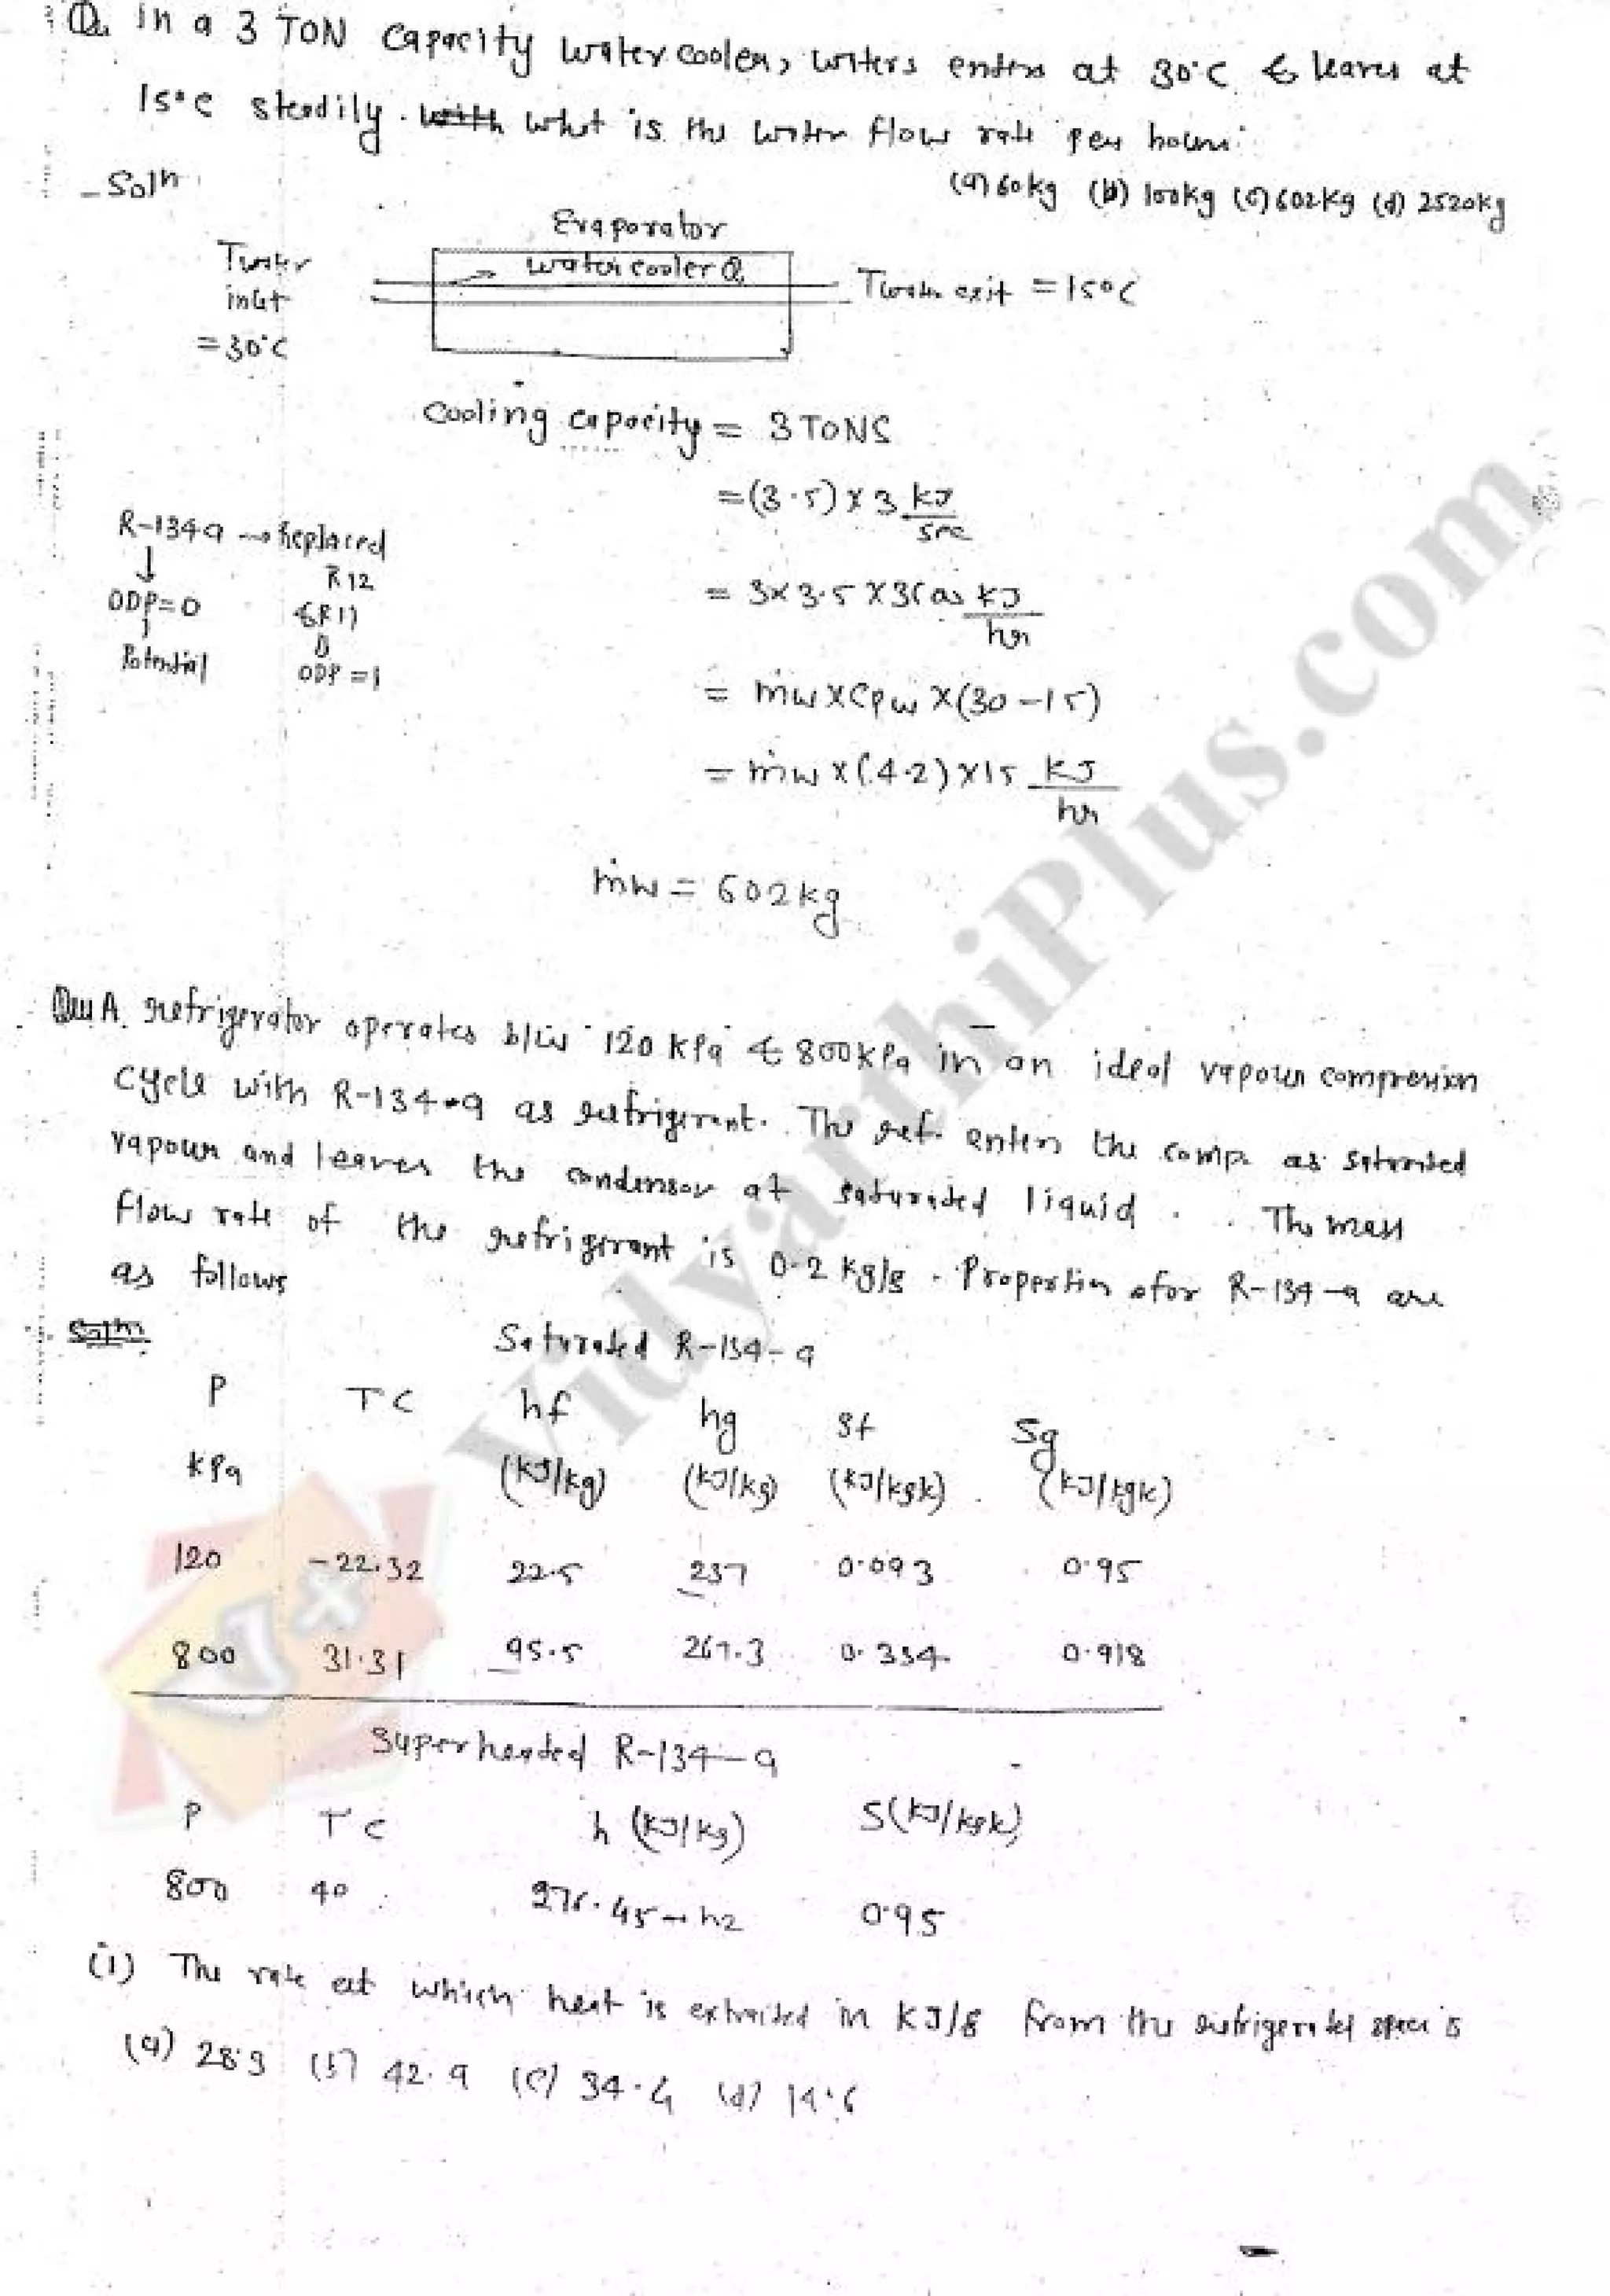 Q. In a 3 TON Capacity water cooler, waters enters at 30°C & leaves at
15°C steadily. what is the water flow rate per hour:
(a) 60kg (b) 100kg (c) 602kg (d) 2520kg
Soln
Evaporator
water cooler Q
Twater
inlet
=30°C
Twater exit = 15°C
Cooling capacity = 3 TONS
= (3.5) x 3 kJ/sec
R-134a → Replaced
R12
& R11
ODP=0
Potential
ODP=1
= 3 x 3.5 x 3600 kJ/hr
= ṁw x Cpw x (30-15)
= ṁw x (4.2) x 15 kJ/hr
ṁw = 602kg
Que A refrigerator operates b/w 120 kPa & 800kPa in an ideal vapour compression
cycle with R-134-a as refrigerant. The ref. enters the comp. as saturated
vapour and leaves the condensor at saturated liquid. The mass
flow rate of the refrigerant is 0.2 kg/s. Properties for R-134-a are
as follows
Soln
Saturated R-134-a
P T C hf hg sf Sg
kPa (kJ/kg) (kJ/kg) (kJ/kgk) (kJ/kgk)
120 -22.32 22.5 237 0.093 0.95
800 31.31 95.5 267.3 0.354 0.918
Superheated R-134-a
P T C h (kJ/kg) S(kJ/kgk)
800 40 276.45 → h2 0.95
(i) The rate at which heat is extracted in KJ/s from the refrigerated space is
(a) 28.3 (b) 42.9 (c) 34.4 (d) 14.6
VidyarthiPlus.com
V+